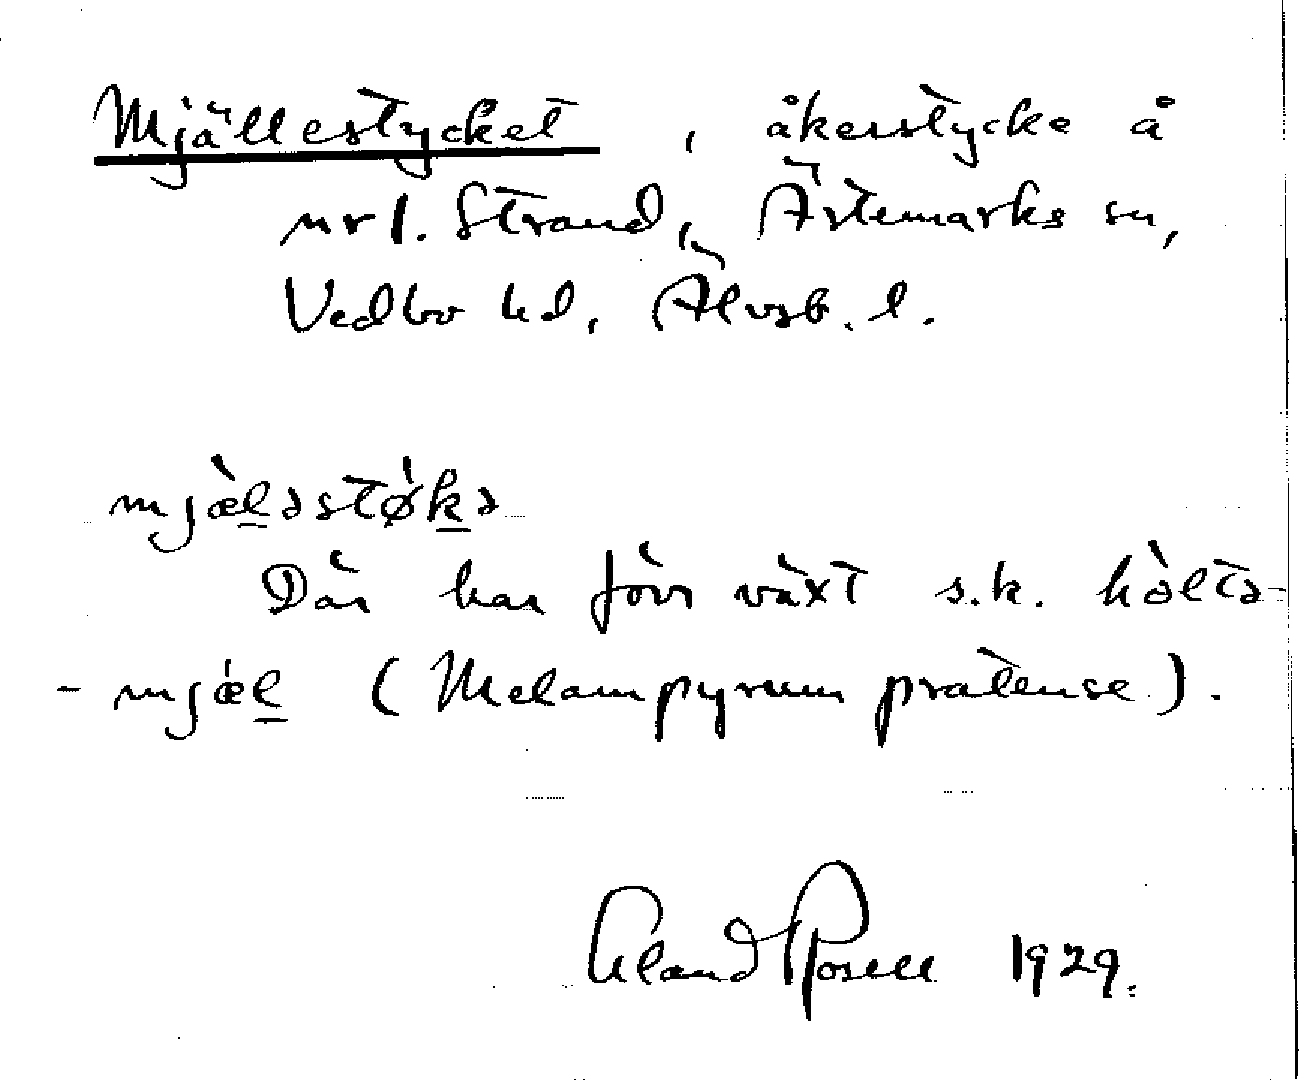 Mjällestycket, åkerstycke å
nr 1. Strand, Ärtemarks sn,
Vedbo hd, Älvsb. l.
mjæ̀l̲əstø̀k̲ə
Där har förr växt s.k. hòltə-
- mjæ̀l̲ (Melampyrum pratense).
Erland Rosell 1929.